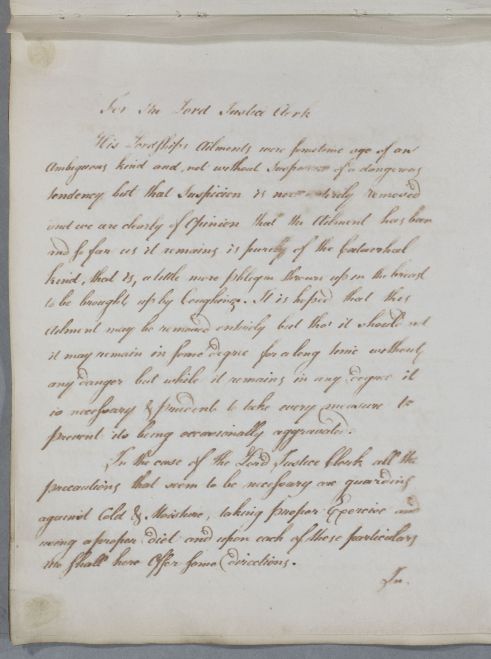 For The Lord Justice Clerk
His Lordships Ailments were sometime ago of an
Ambiguous kind and, not without Suspicion of a dangerous
tendency but that Suspicion is now entirely removed
and we are clearly of Opinion that the Ailment has been
and so far as it remains is purely of the Catarrhal
kind, that is, a little more phlegm thrown up in the breast
to be brought up by Coughing. It is hoped that this
Ailment may be removed entirely but tho' it should not
it may remain in some degree for a long time without
any danger but while it remains in any degree it
is necessary & prudent to take every measure to
prevent its being occasionally aggravated.
In the case of the Lord Justice Clerk all the
precautions that seem to be necessary are guarding
against Cold & Moisture, taking proper Exercise and
using a proper diet and upon each of these particulars
we shall here Offer some directions.
In.